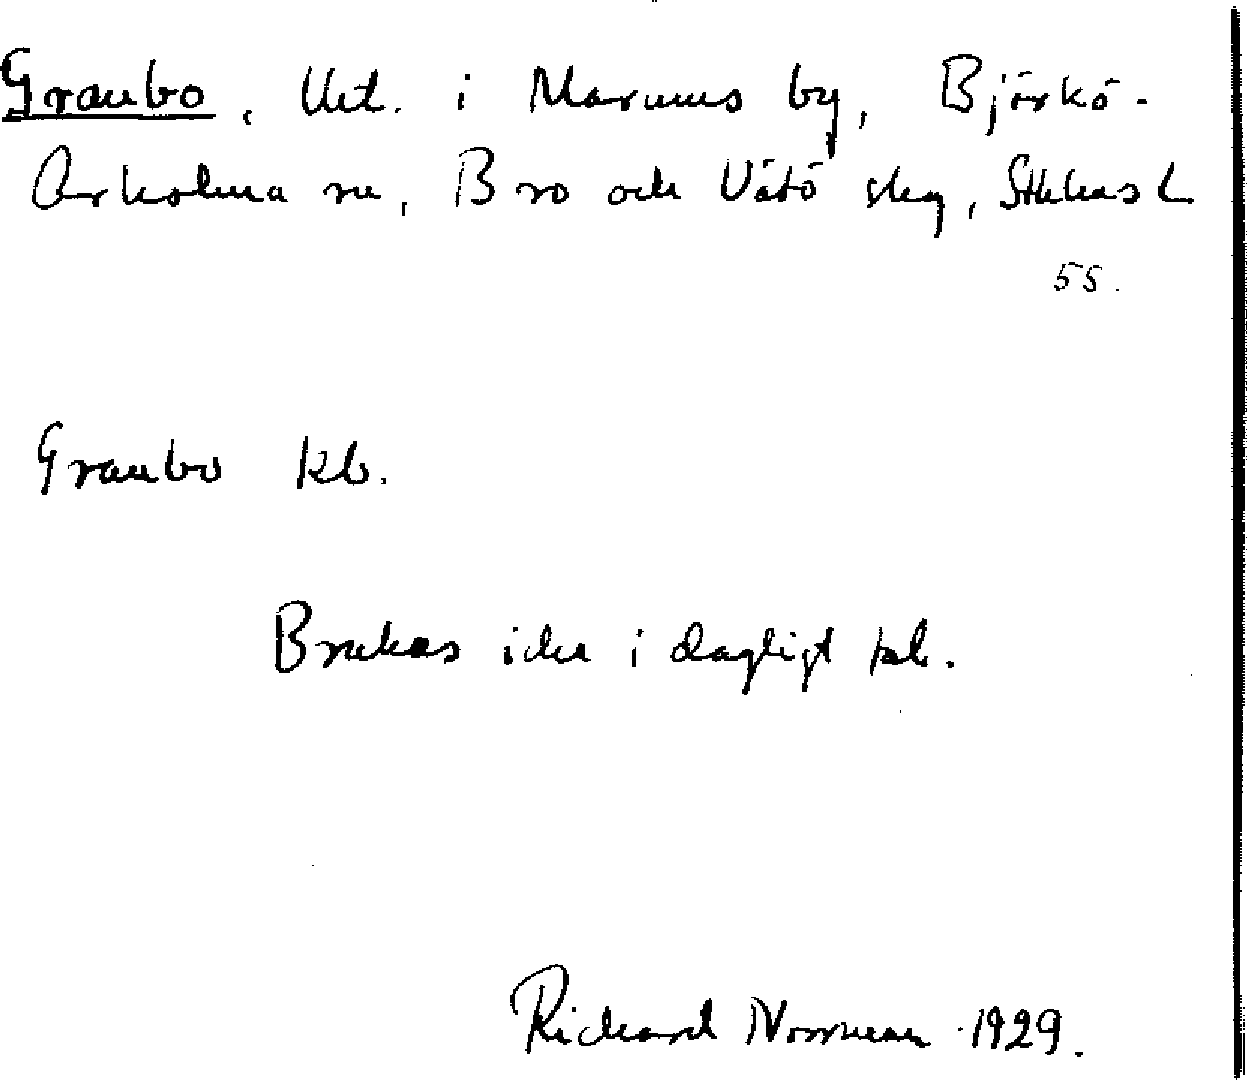 Granbo, Utt. i Marums by, Björkö-
Arholma sn, Bro och Vätö skg, Sthlms L
55.
Granbo kb.
Brukas icke i dagligt tal.
Richard Norrman 1929.